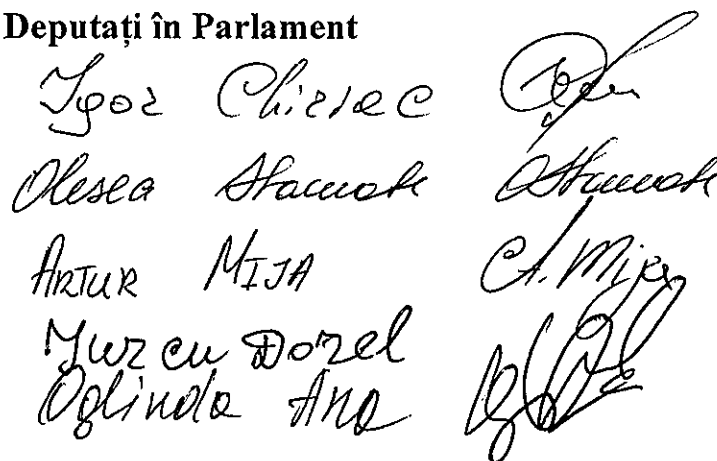 Deputați în Parlament
Igor Chiriac
Olesea Stamate Stamate
ARTUR MIJA A. Mija
Iurcu Dorel
Oglinda Ana